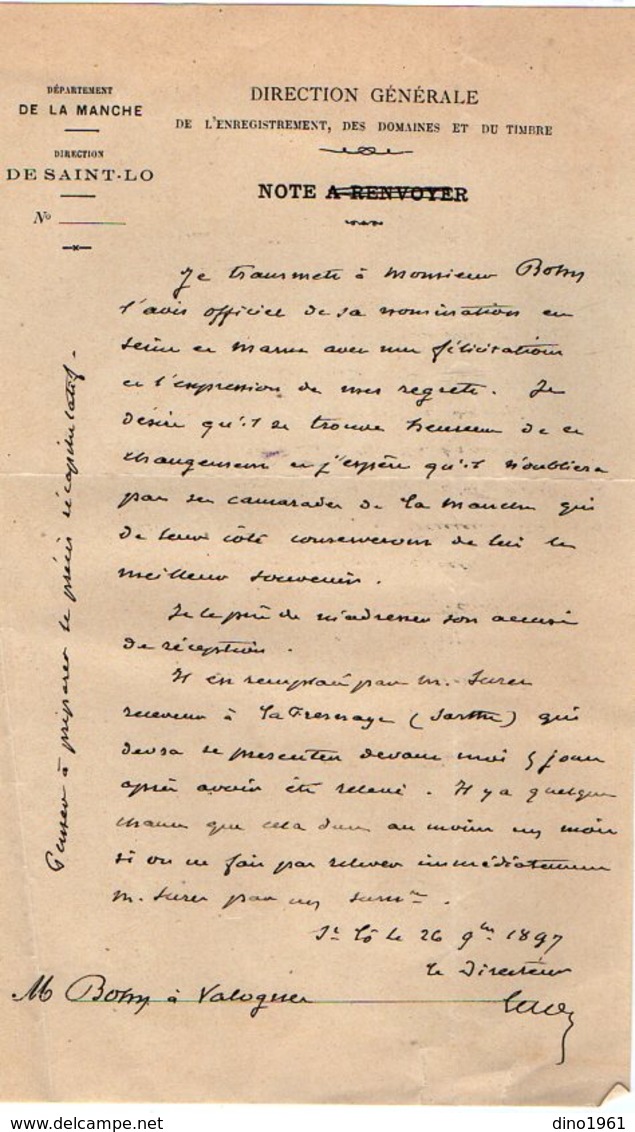 DÉPARTEMENT
DE LA MANCHE
DIRECTION
DE SAINT-LO
No
DIRECTION GÉNÉRALE
DE L'ENREGISTREMENT, DES DOMAINES ET DU TIMBRE
NOTE A RENVOYER
Je transmets à Monsieur
l'avis officiel de sa nomination en
Seine et Marne avec mes félicitations
et l'expression de mes regrets. Je
désire qu'il se trouve heureux de ce
changement et j'espère qu'il n'oubliera
pas ses camarades de la Manche qui
de leur côté conserveront de lui le
meilleur souvenir.
Je le prie de m'adresser son accusé
de réception.
Il est remplacé par M.
receveur à la Fresnaye (Sarthe) qui
devra se présenter devant moi 5 jours
après avoir été relevé. Il y a quelque
chance que cela dure au moins un mois
si on ne fait pas relever immédiatement
M. par un surnre.
St Lô le 26 9bre 1897
le Directeur
M à Valognes
Penser à préparer le précis récapitulatif.
dino1961